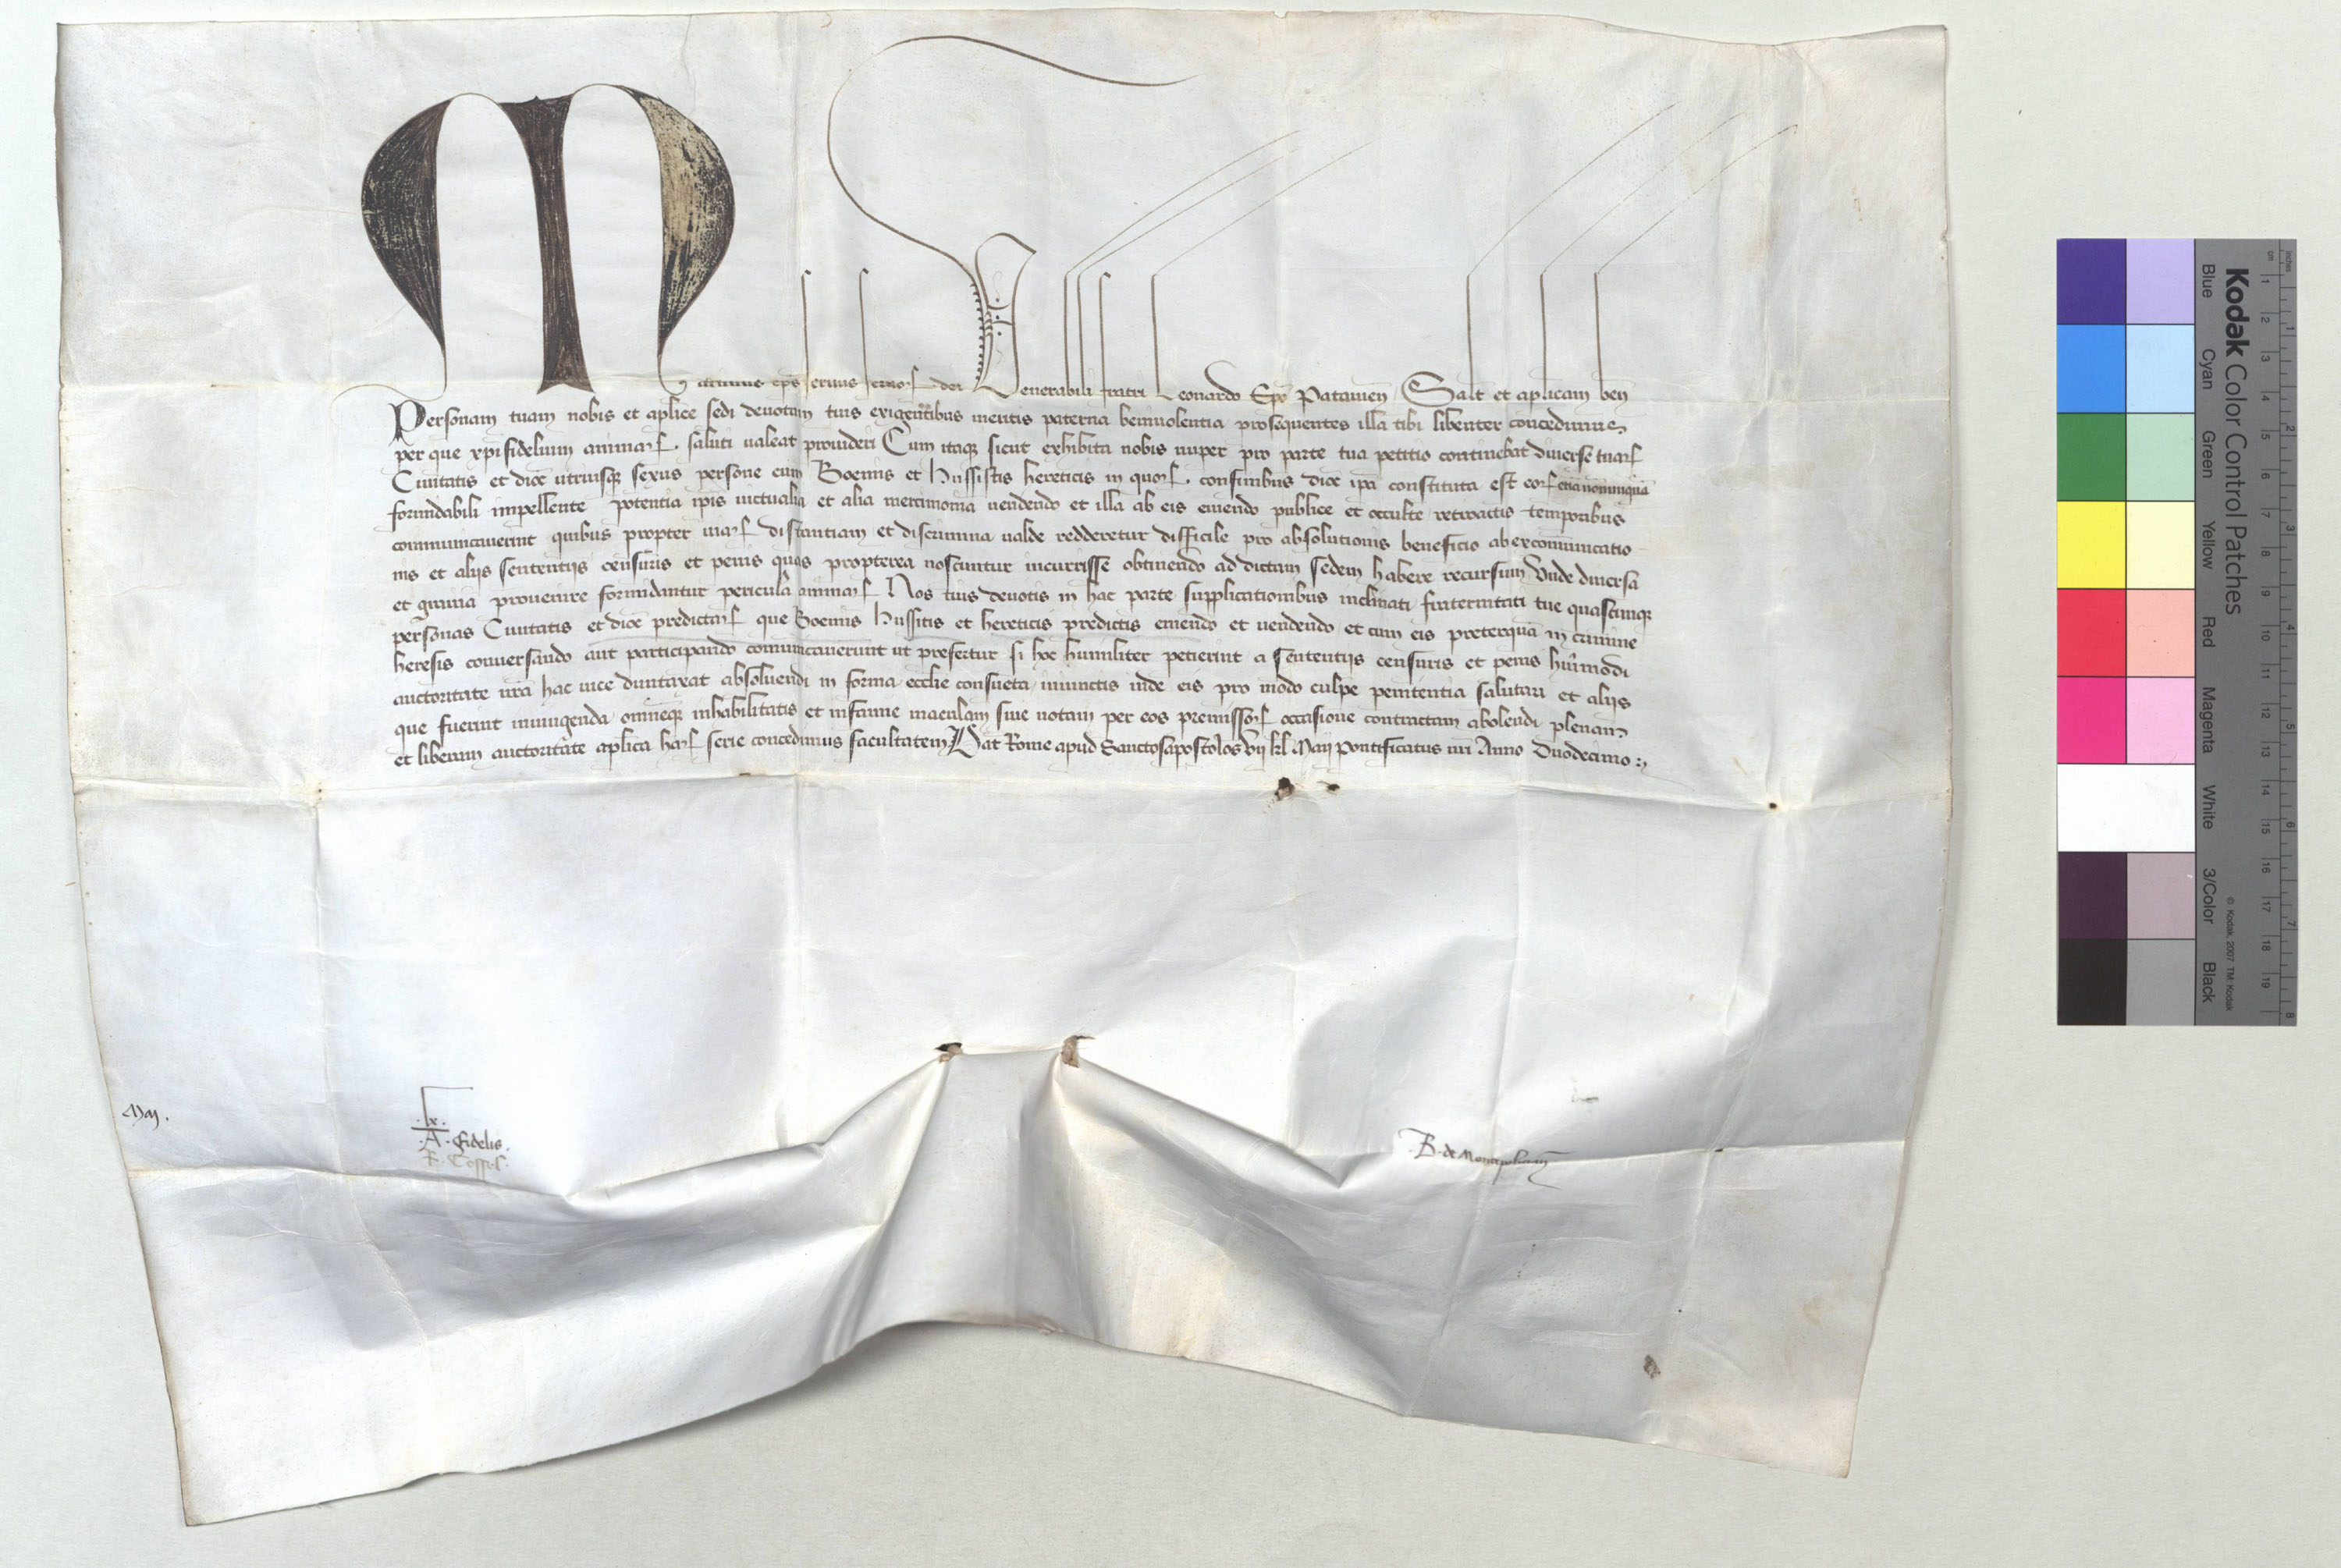 Martinus eps seruus seruoꝝ dei Venerabili fratri Leonardo Epo Patauien Salt et aplicam ben
Personam tuam nobis et aplice sedi deuotam tuis exigentibus meritis paterna beniuolentia prosequentes illa tibi libenter concedimus
per que xpifidelium animaꝝ saluti ualeat prouideri Cum itaqꝫ sicut exhibita nobis nuper pro parte tua petitio continebat diuerse tuaꝝ
Ciuitatis et dioc utriusqꝫ sexus persone cum Boemis et Hussistis hereticis in quoꝝ confinibus dioc ipa constituta est eoꝝ etiam nonnunqua
formidabili impellente potentia ipis uictualia et alia mercimonia uendendo et illa ab eis emendo publice et occulte retroactis temporibus
communicauerint quibus propter uiaꝝ distantiam et discrimina ualde redderetur difficile pro absolutionis beneficio ab excommunicatio
nis et aliis sententiis censuris et penis quas propterea noscuntur incurrisse obtinendo ad dictam sedem habere recursum Unde diuersa
et grauia prouenire formidantur pericula animaꝝ Nos tuis deuotis in hac parte supplicationibus inclinati fraternitati tue quascunqꝫ
personas Ciuitatis et dioc predictaꝝ que Boemis Hussitis et hereticis predictis emendo et uendendo et cum eis preterqua in crimine
heresis conuersando aut participando communicauerunt ut prefertur si hoc humiliter petierint a sententiis censuris et penis huiusmodi
auctoritate nra hac uice duntaxat absoluendi in forma ecclie consueta iniunctis inde eis pro modo culpe penitentia salutari et aliis
que fuerint iniungenda omnemqꝫ inhabilitatis et infamie maculam siue notam per eos premissoꝝ occasione contractam abolendi plenam
et liberam auctoritate aplica haꝝ serie concedimus facultatem Dat Rome apud Sanctosapostolos vij kl Maii Pontificatus nri Anno Duodecimo
Maij.
.lx.
.A. Fidelis.
B. de Montepoliciano
Kodak Color Control Patches
Blue Cyan Green Yellow Red Magenta White 3/Color Black
© Kodak, 2007 TM: Kodak
inches 1 2 3 4 5 6 7 8
cm 1 2 3 4 5 6 7 8 9 10 11 12 13 14 15 16 17 18 19